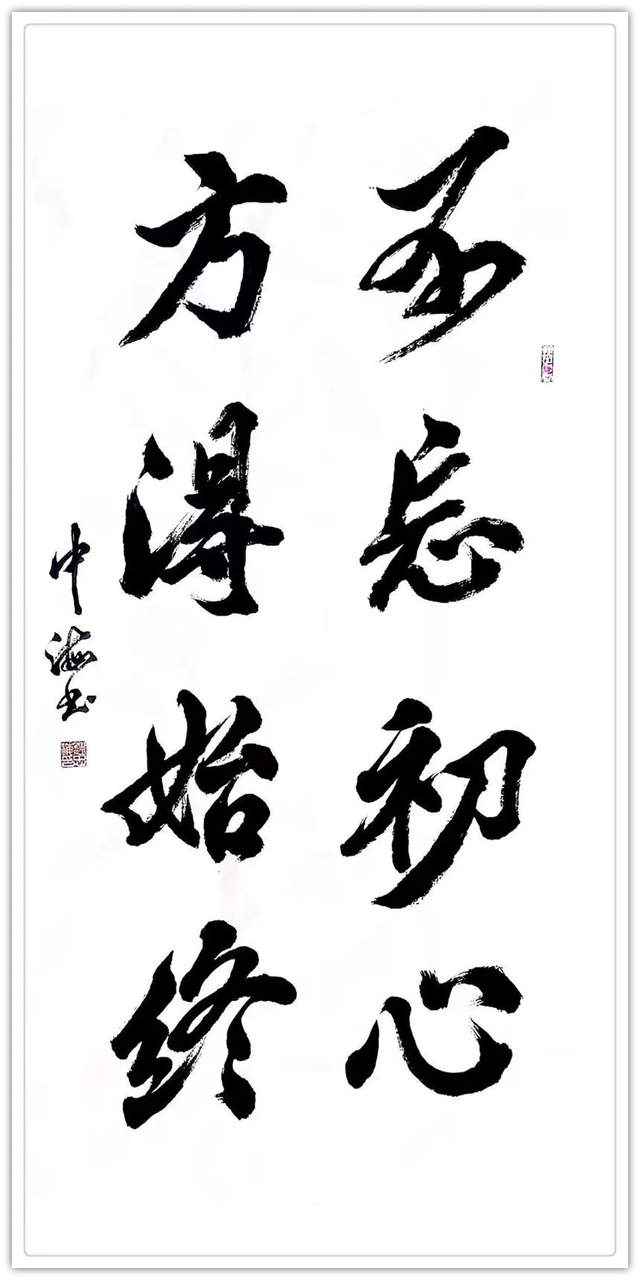 不忘初心
方得始终
中海书